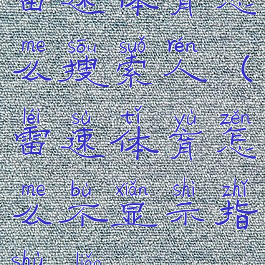 雷速体育怎
me sōu suǒ rén
么搜索人（
léi sù tǐ yù zěn
雷速体育怎
me bù xiǎn shì zhǐ
么不显示指
shù